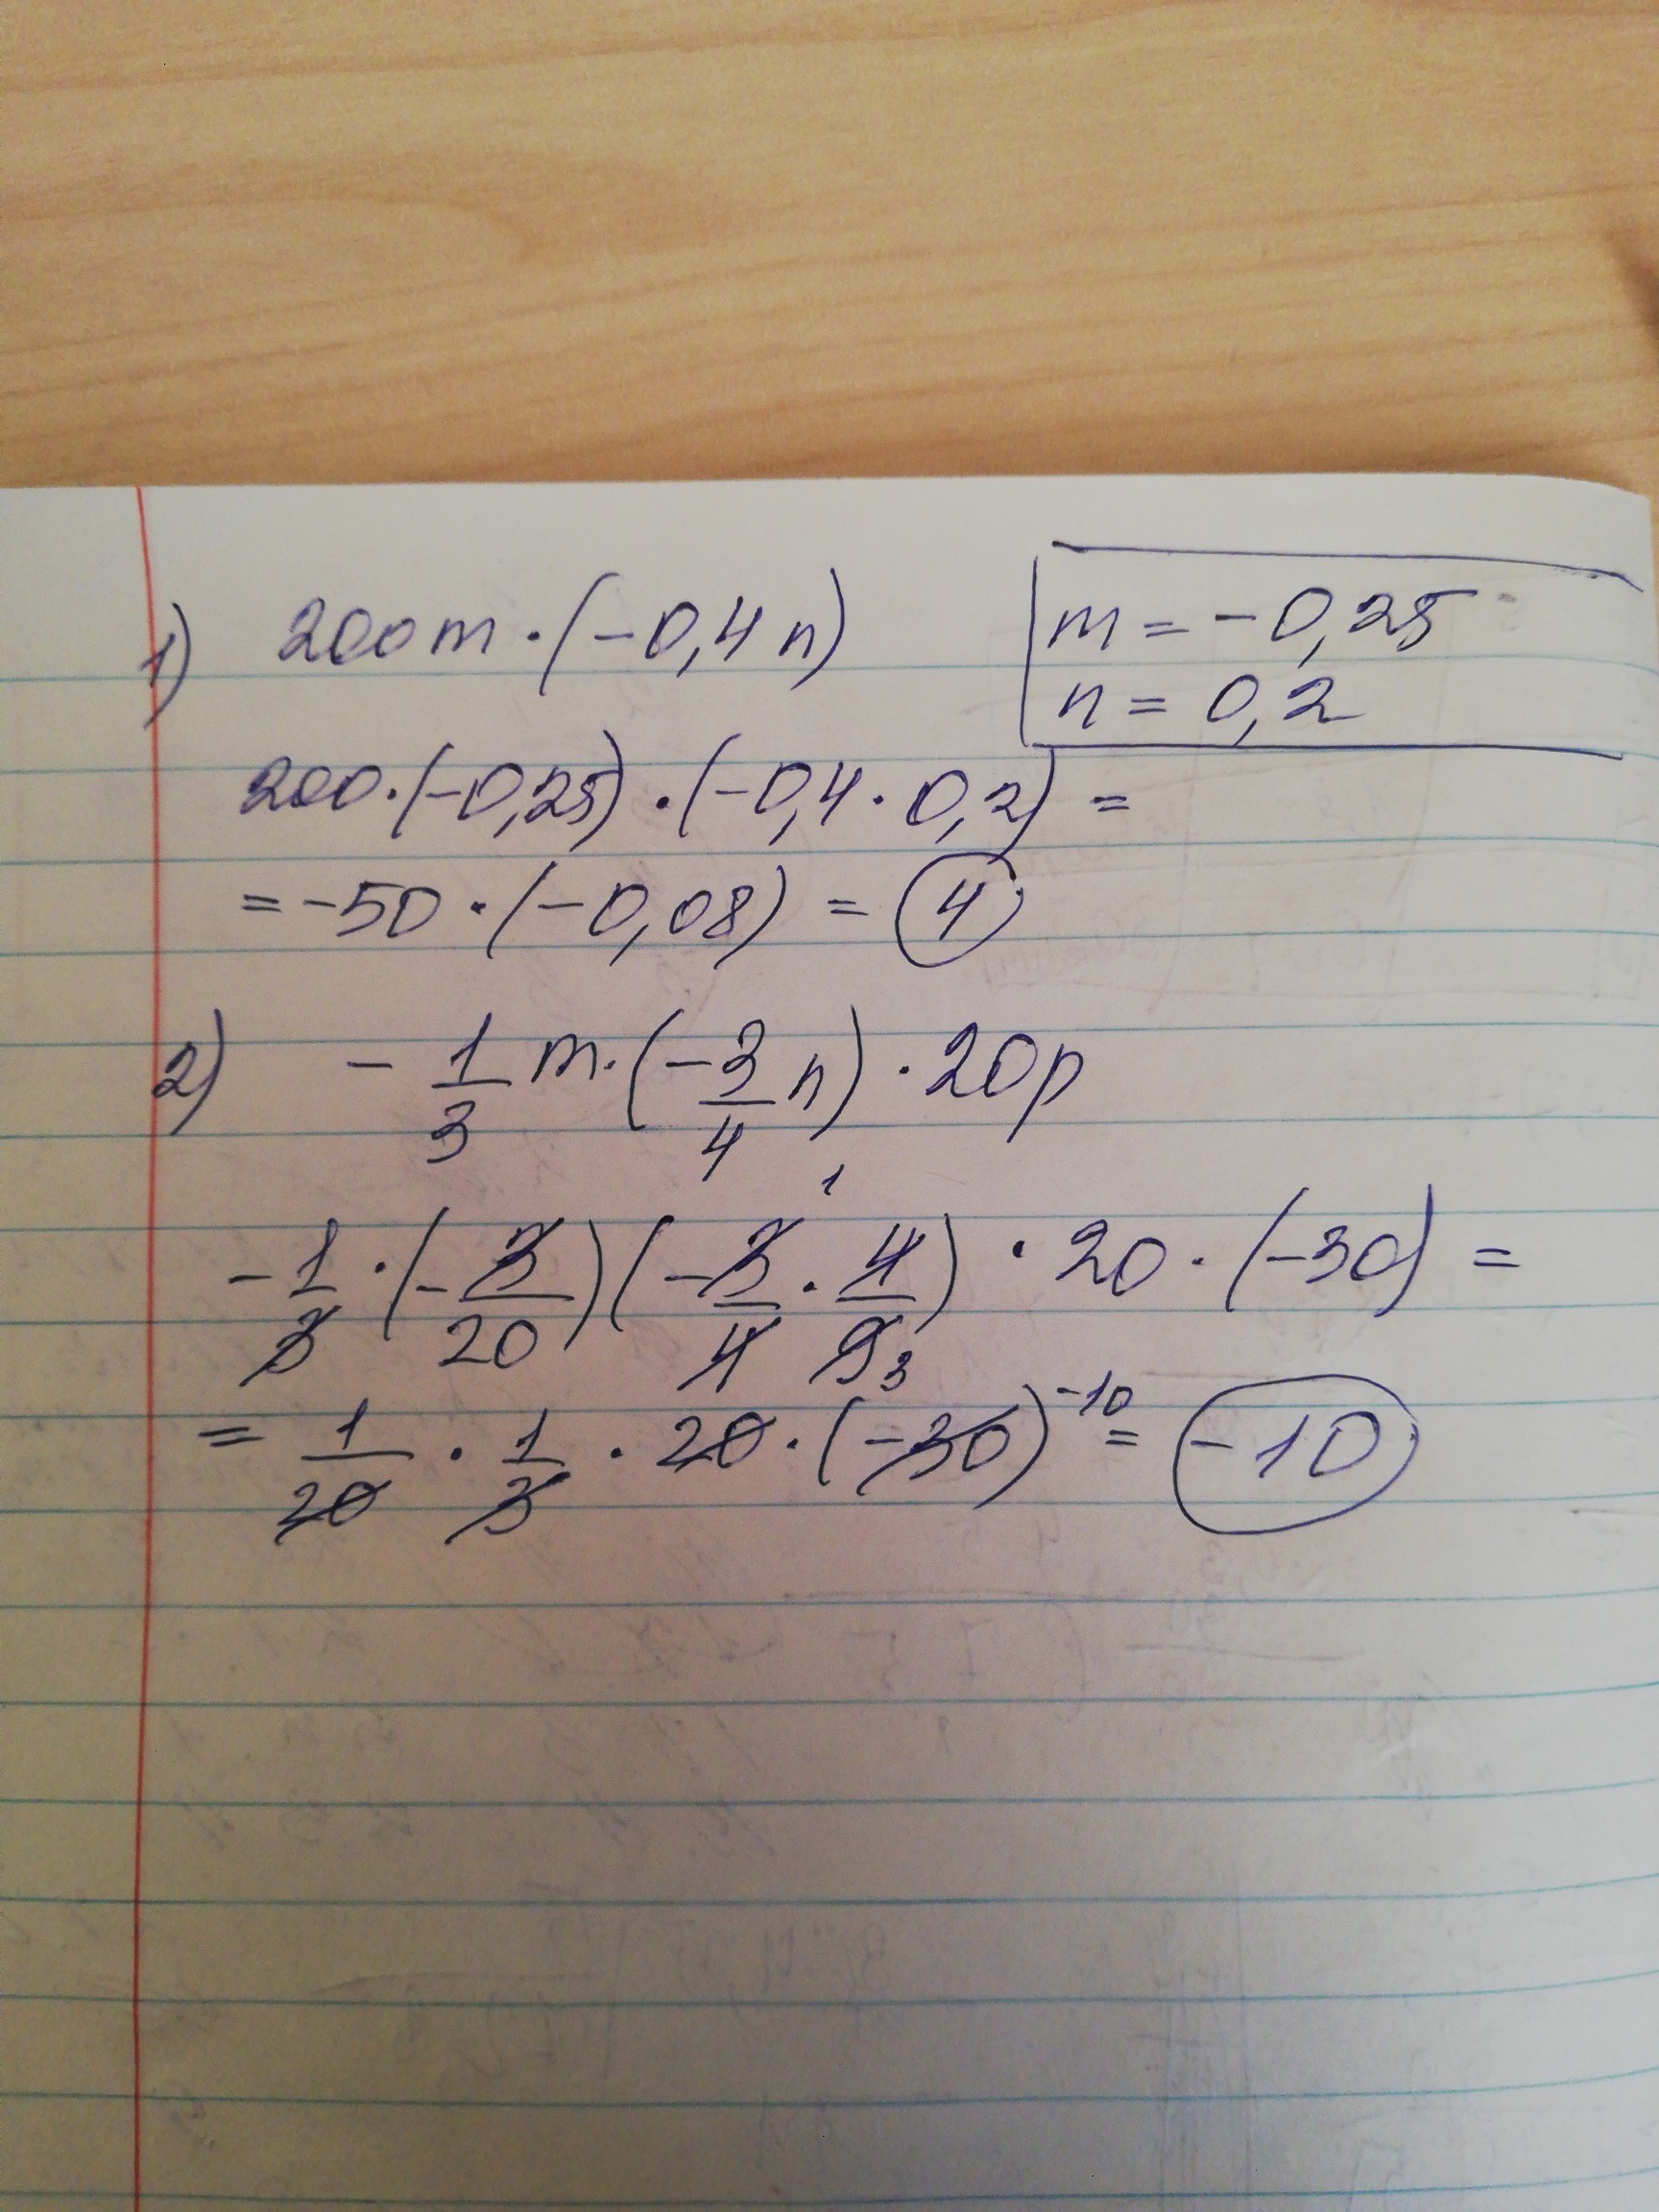 1) 200m·(-0,4n)
m = -0,25
n = 0,2
200·(-0,25)·(-0,4·0,2) =
= -50·(-0,08) = 4
2) -1/3 m·(-3/4 n)·20p
-1/3·(-3/20)(-3/4·4/9)·20·(-30) =
= 1/20·1/3·20·(-30) = -10